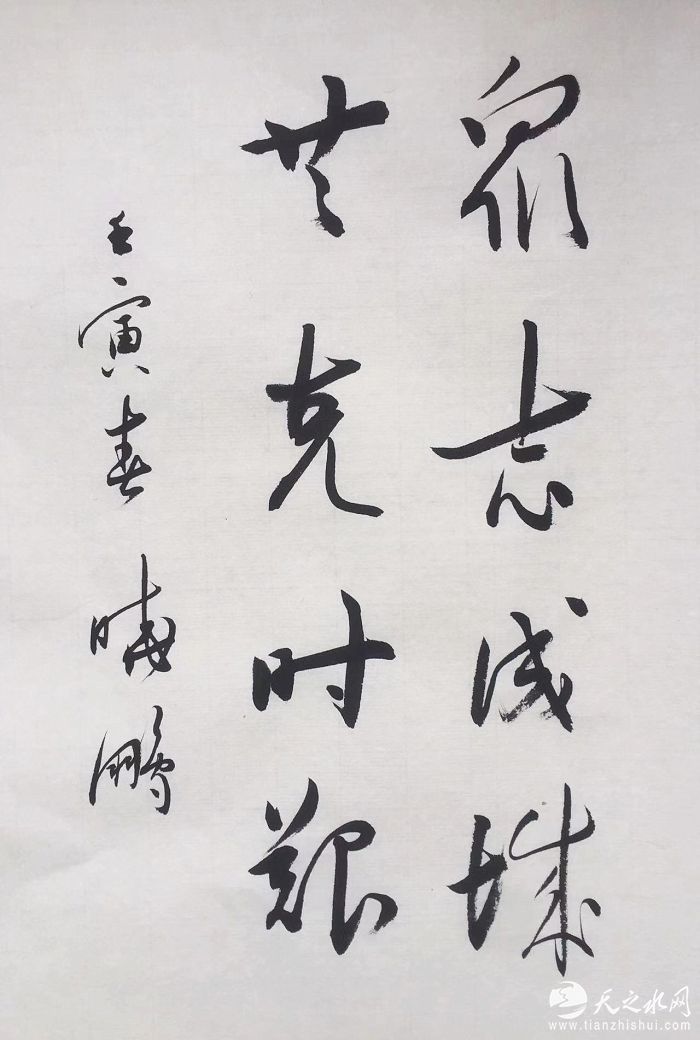 眾志成城
共克时艱
壬寅春 晓鹏
天之水网
www.tianzhishui.com